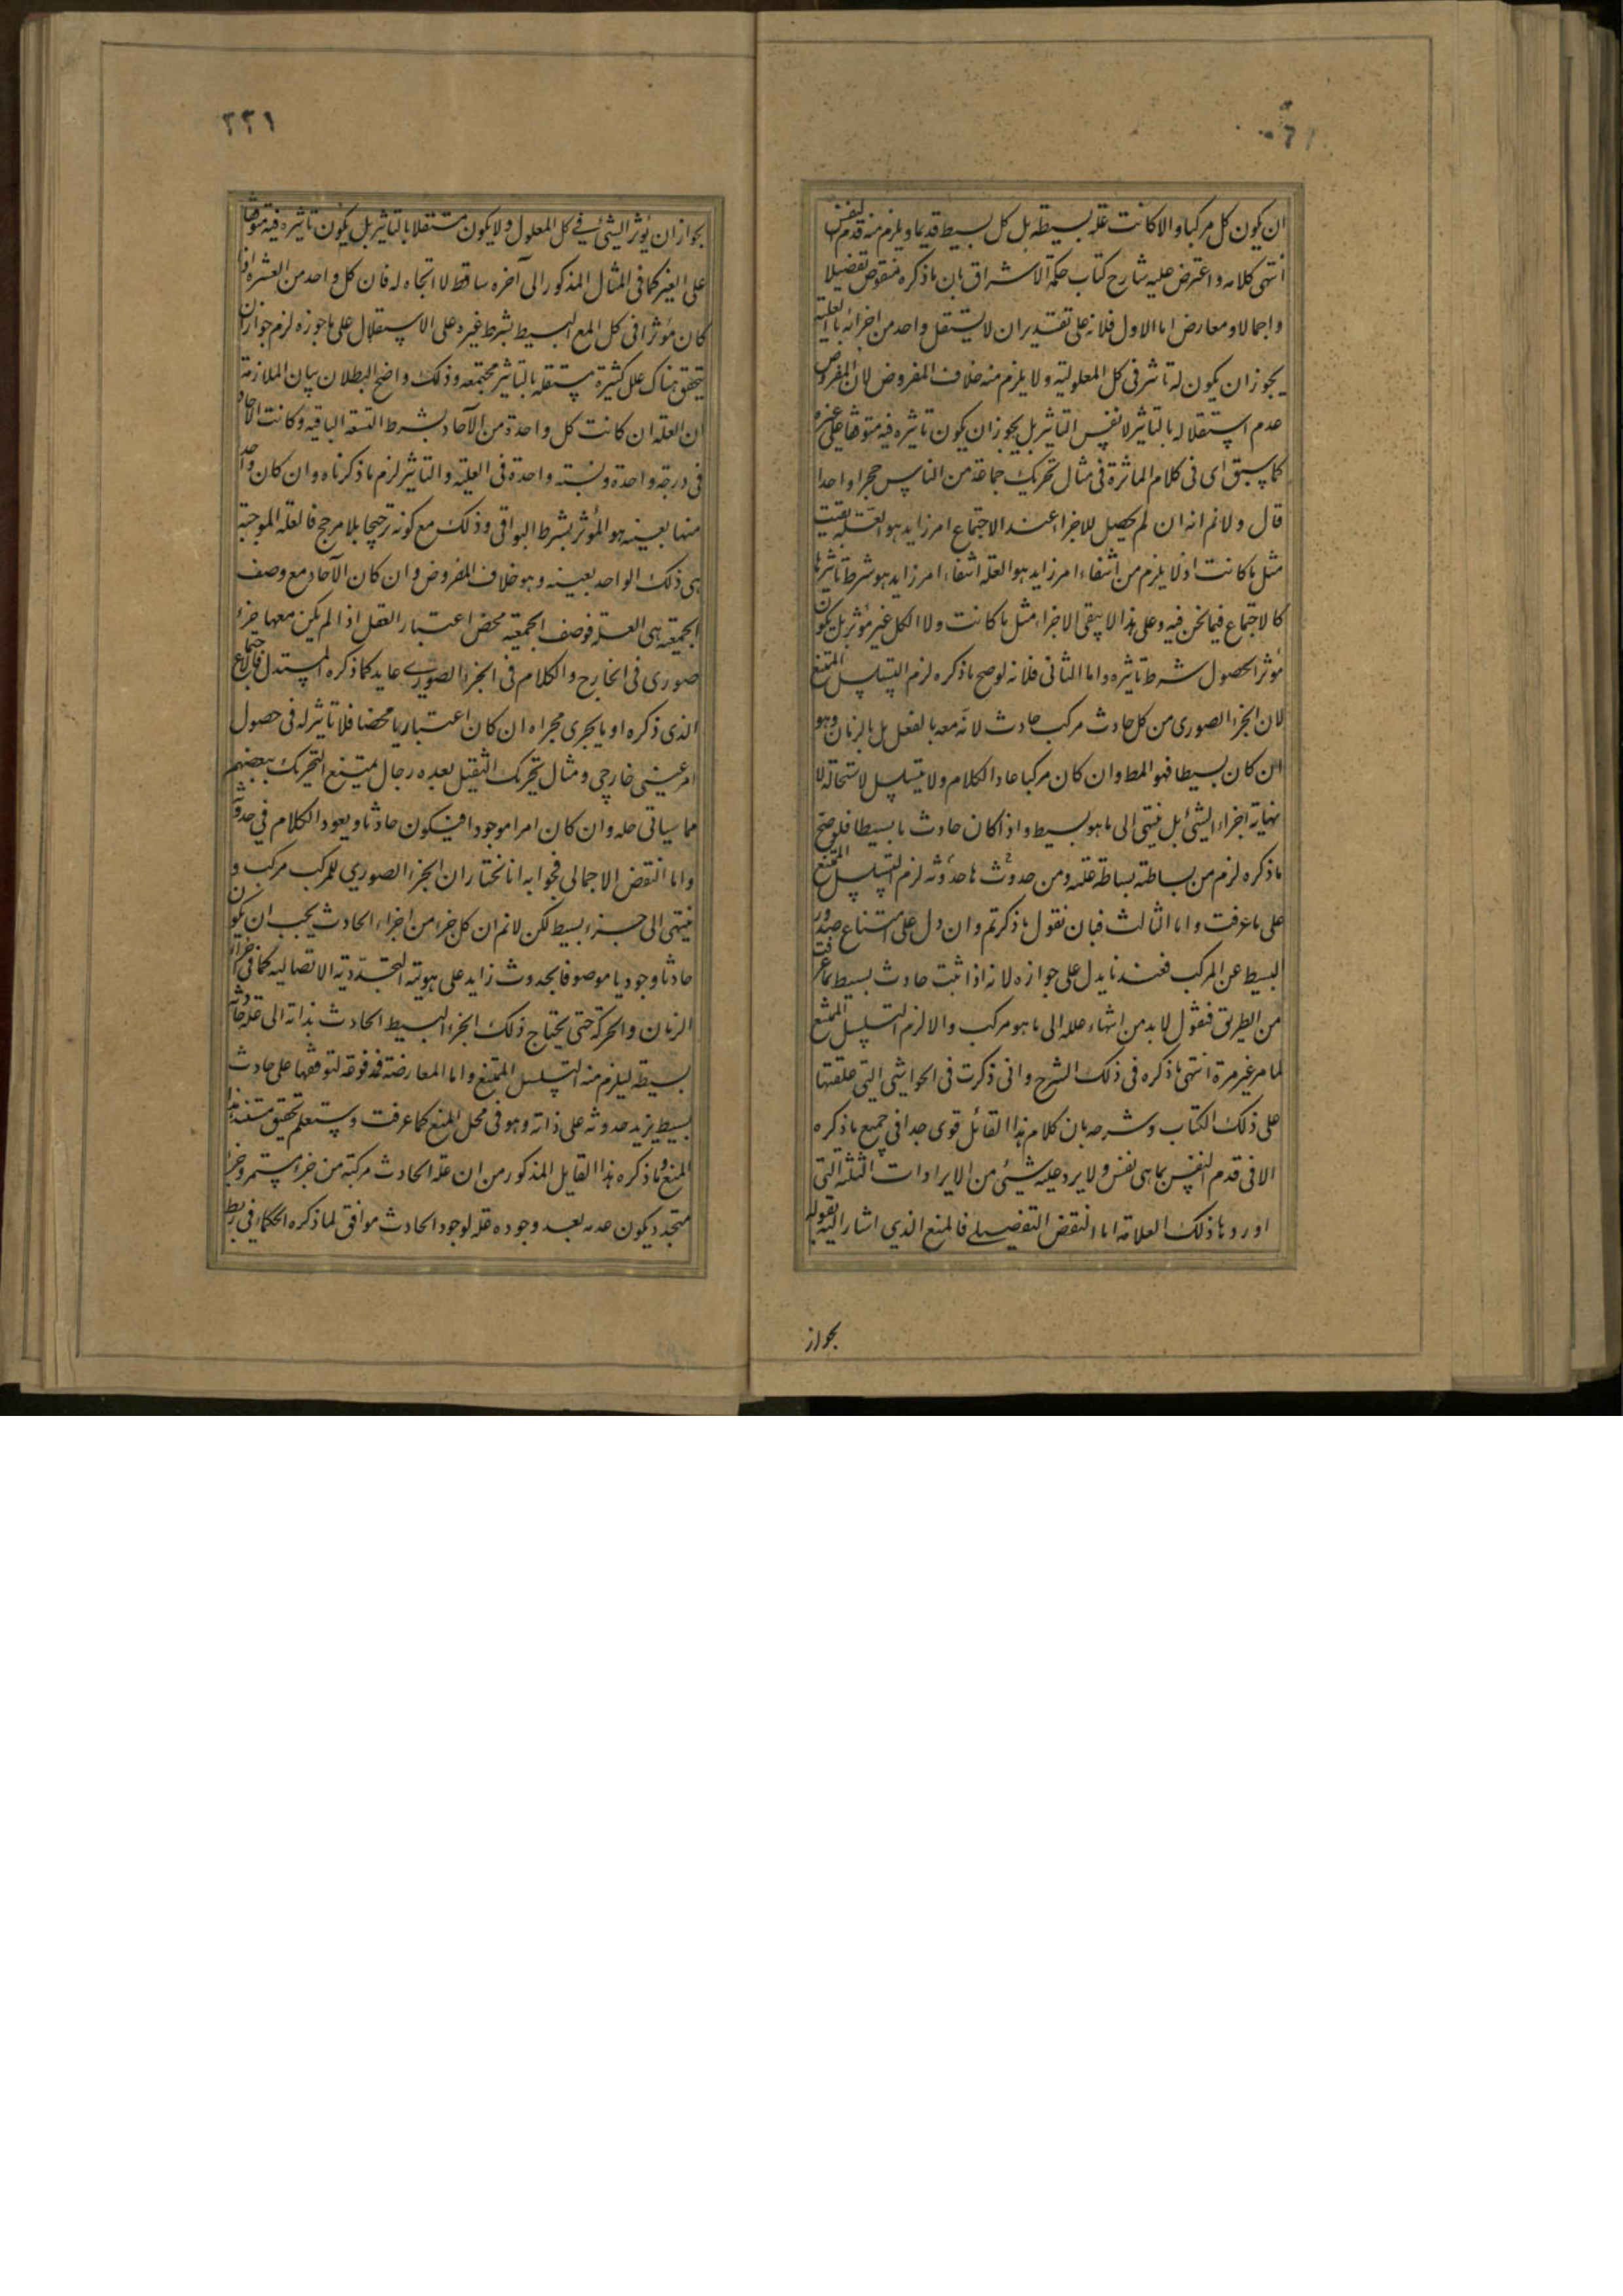 ان يكون كل مركبا و الا كانت علة بسيطه بل كل بسيط قديما و يلزم منه قدم النفس
انتهى كلامه و اعترض عليه شارح كتاب حكمة الاشراق بان ما ذكره منقوض تفضيلا
و اجمالا و معارض اما الاول فلانه على تقدير ان لا يستقل واحد من اجزائه بالعلية
يجوز ان يكون له تاثير فى كل المعلولية و لا يلزم منه خلاف المفروض لان المفروض
عدم استقلاله بالتاثير لا نفس التاثير بل يجوز ان يكون تاثيره فيه متوقفا على غيره
كما سبق اى فى كلام الماثرة فى مثال تحريك جماعة من الناس حجرا واحدا
قال و لانم انه ان لم يحصل للاجزا عند الاجتماع امر زايد هو العلة بقيت
مثل ما كانت اذ لا يلزم من انتفاء امر زايد هو العلة انتفاء امر زايد هو شرط تاثيرها
كالاجتماع فيما نحن فيه و على هذا لا يبقى الاجزاء مثل ما كانت و لا الكل غير مؤثر بل يكون
مؤثرا لحصول شرط تاثيره و اما الثانى فلانه لو صح ما ذكره لزم التسلسل الممتنع
لان الجزء الصورى من كل حادث مركب حادث لانه معه بالفعل بل بالزمان و هو
ان كان بسيطا فهو المط و ان كان مركبا عاد الكلام و لا يتسلسل لاستحالة لا
نهاية اجزاء الشئ بل ينتهى الى ما هو بسيط و اذا كان حادث ما بسيطا فلو صح
ما ذكره لزم من بساطته بساطة علته و من حدوثها حدوثه لزم التسلسل الممتنع
على ما عرفت و اما الثالث فبان نقول ما ذكرتم و ان دل على امتناع صدور
البسيط عن المركب فعندنا يدل على جوازه لانه اذا ثبت حادث بسيط بما عرفت
من الطريق فنقول لابد من انتهاء علله الى ما هو مركب و الا لزم التسلسل الممتنع
لما مر غير مرة انتهى ما ذكره فى ذلك الشرح و انى ذكرت فى الحواشى التى علقتها
على ذلك الكتاب و شرحه بان كلام هذا القائل قوى جدا فى جميع ما ذكره
الا فى قدم النفس بما هى نفس و لا يرد عليه شيئ من الايرادات الثلثة التى
اوردها ذلك العلامة اما النقض التفصيلے فالمنع الذي اشار اليه بقوله
بجواز
٢٢١
بجواز ان يؤثر الشئ فے كل المعلول و لا يكون مستقلا بالتاثير بل يكون تاثيره فيه متوقفا
على الغير كما فى المثال المذكور الى آخره ساقط لا اتجاه له فان كل واحد من العشره اذا
كان مؤثرا فى كل المع البسيط بشرط غيره على الاستقلال على ما جوزه لزم جواز ان
يتحقق هناك علل كثيرة مستقله بالتاثير مجتمعه و ذلك واضح البطلان بيان الملازمة
ان العلة ان كانت كل واحدة من الآحاد بشرط التسعة الباقيه و كانت الآحاد
فى درجة واحدة و نسبته واحدة فى العلية و التاثير لزم ما ذكرناه و ان كان واحد
منها بعينه هو المؤثر بشرط البواقى و ذلك مع كونه ترجيحا بلا مرجح فالعلة الموجبة
هى ذلك الواحد بعينه و هو خلاف المفروض و ان كان الآحاد مع وصف
الجمعية هى العلة فوصف الجمعية محض اعتبار العقل اذا لم يكن معها جزء
صورى فى الخارج و الكلام فى الجزء الصورے عايد كما ذكره المستدل فالاجتماع
الذى ذكره او ما يجرى مجراه ان كان اعتباريا محضا فلا تاثير له فى حصول
امر عينى خارجى و مثال تحريك الثقيل بعده رجال يمتنع التحريك ببعضهم
مما سياتى حله و ان كان امرا موجودا فيكون حادثا و يعود الكلام في حدوثه
و اما النقض الاجمالى فجوابه انا نختار ان الجزء الصوري للمركب مركب و
ينتهى الى جزء بسيط لكن لانم ان كل جزء من اجزاء الحادث يجب ان يكون
حادثا وجوديا موصوفا بحدوث زايد على هويته التجددية الاتصاليه كما فى اجزاء
الزمان و الحركة حتى يحتاج ذلك الجزء البسيط الحادث بذاته الى علة حادثه
بسيطه ليلزم منه التسلسل الممتنع و اما المعارضة فمدفوعة لتوقفها على حادث
بسيط يزيد حدوثه على ذاته و هو فى محل المنع كما عرفت و ستعلم تحقيق مستند هذا
المنع و ما ذكره هذا القايل المذكور من ان علة الحادث مركبة من جزء مستمر و جزء
متجدد يكون عدمه بعد وجوده علة لوجود الحادث موافق لما ذكره الحكماء فى ربط